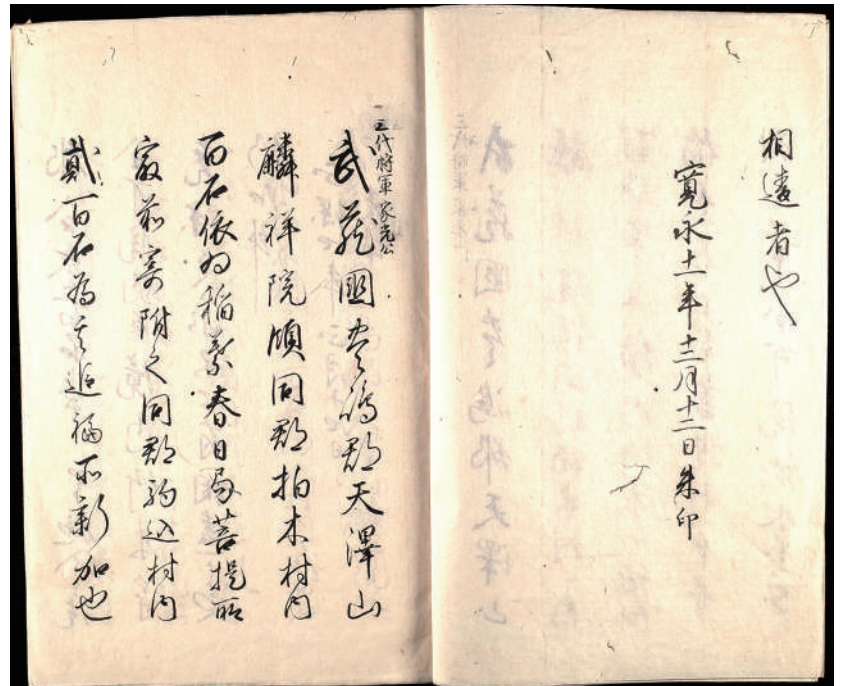 相違者也
寛永十一年十二月十二日朱印
一三代将軍家光公
武蔵國豊嶋郡天澤山
麟祥院領同郡柏木村内
百石依為稲葉春日局菩提所
最前寄附之同郡駒込村内
貳百石為其追福所新加也